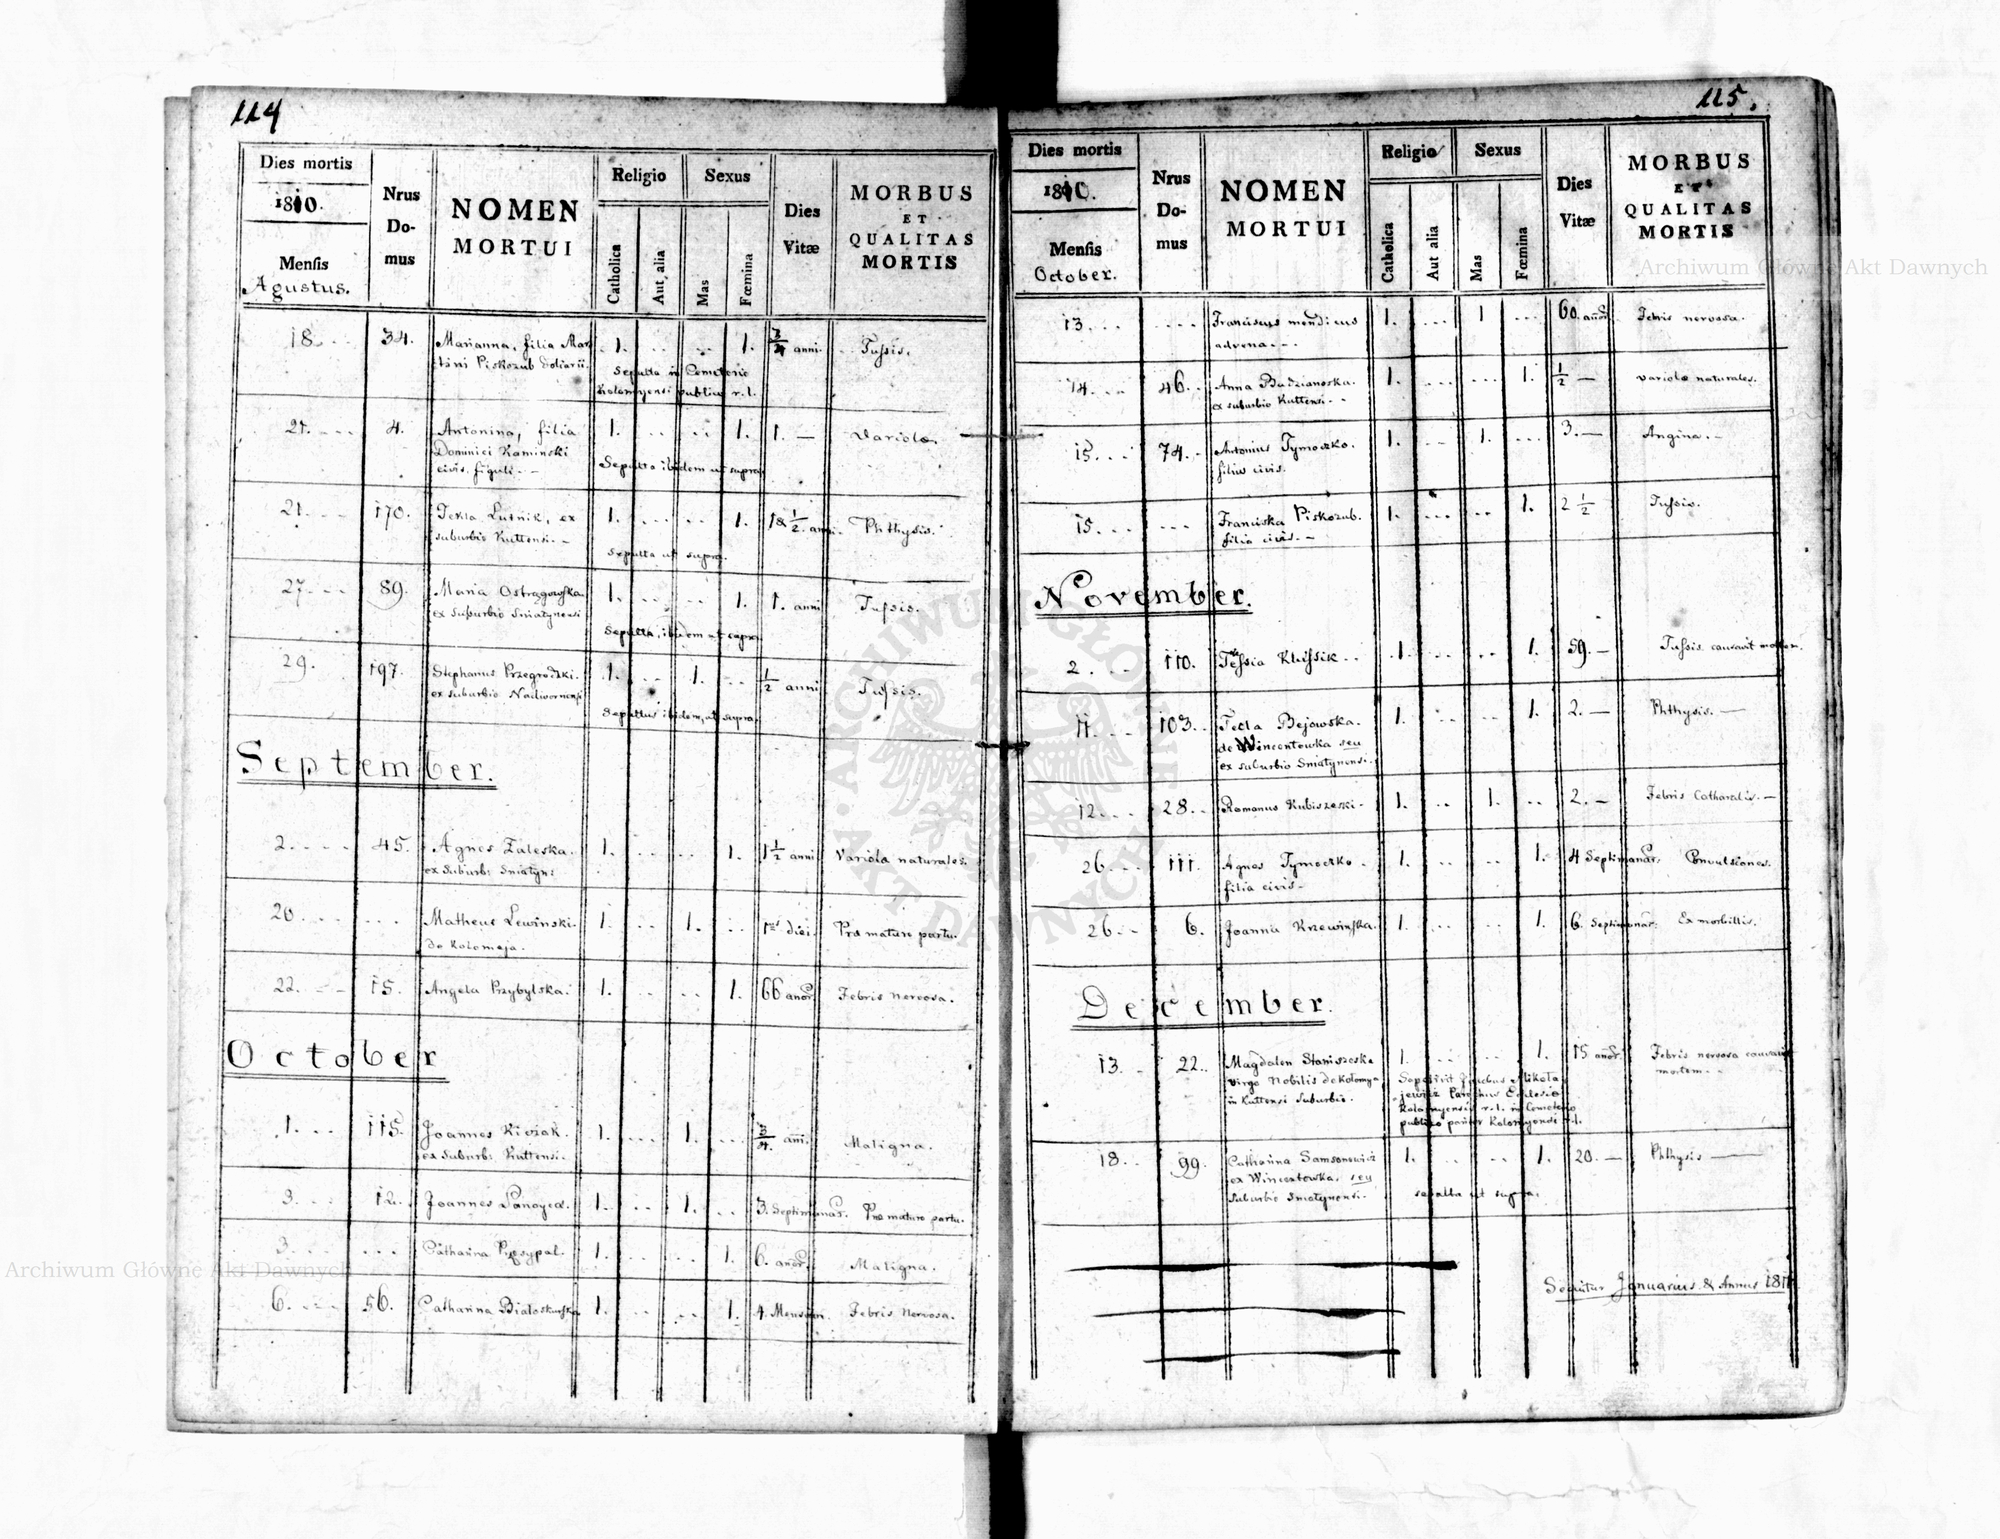 114
Dies mortis
1810.
Mensis
Agustus.
Nrus
Do-
mus
NOMEN
MORTUI
Religio
Catholica
Aut alia
Sexus
Mas
Fœmina
Dies
Vitæ
MORBUS
ET
QUALITAS
MORTIS
18. 34. Marianna, filia Mar 1. 1. 3/4 anni. Tussis.
tini Piskozub doliarii. Sepulta in Cemeterio
Kolomyensi publico r. l.
21. 4. Antonina, filia 1. 1. 1. — Variolæ.
Dominici Kaminski
civis figuli. Sepulta ibidem ut supra
21. 170. Tekla Lutnik, ex 1. 1. 1 & 1/2 anni. Phthysis.
suburbio Kuttensi. Sepulta ut supra.
27. 89. Maria Ostrągowska 1. 1. 1. anni Tussis.
ex suburbio Sniatynensi
Sepulta, ibidem ut supra
29. 197. Stephanus Przegrodzki. 1. 1. 1/2 anni Tussis.
ex suburbio Nadwornensi
Sepultus ibidem, ut supra.
September.
2. 45. Agnes Zaleska. 1. 1. 1 1/2 anni Variola naturales.
ex Suburb: Sniatyn:
20. Matheus Lewinski. 1. 1. diei. Præ maturo partu.
de Kolomeja.
22. 15. Angela Przybylska. 1. 1. 66 anor. Febris nervosa.
October
1. 115. Joannes Kiciak. 1. 1. 3/4 ani. Maligna.
ex Suburb: Kuttensi.
3. 12. Joannes 1. 1. 3. Septimanar. Præ maturo partu.
3. Catharina Przesypal. 1. 1. 6. anor. Maligna.
6. 56. Catharina Bialoskurska 1. 1. 4. Mensium. Febris Nervosa.
115.
Dies mortis
1810.
Mensis
October.
Nrus
Do-
mus
NOMEN
MORTUI
Religio
Catholica
Aut alia
Sexus
Mas
Fœmina
Dies
Vitæ
MORBUS
ET
QUALITAS
MORTIS
13. Franciscus mendicus 1. 1 60. anor Febris nervosa.
advena.
14. 46. Anna Budzianoska. 1. 1. 1/2 — variolæ naturales.
ex suburbio Kuttensi.
15. 74. Antonius Tymoczko. 1. 1. 3. — Angina.
filius civis.
15. Franciska Piskozub. 1. 1. 2 1/2 Tussis.
filia civis.
November.
2. 110. Tessia Klissik 1. 1. 59. — Tussis causavit mortem.
11. 103. Tecla Bejowska. 1. 1. 2. — Phthysis. —
de Wincentowka seu
ex suburbio Sniatynensi.
12. 28. Romanus Kubiszeski. 1. 1. 2. — Febris Catharalis. —
26. 111. Agnes Tymoczko. 1. 1. 4 Septimanar: Convulsiones.
filia civis
26. 6. Joanna Krzewinska. 1. 1. 6. Septimanar: Ex morbillis.
December.
13. 22. Magdalen Staniszeska 1. 1. 15 anor. Febris nervosa causavit
virgo Nobilis de Kolomya mortem.
in Kuttensi Suburbio.
Sepelivit Jacobus Mikola
jewicz Parochus Eclesiæ
Kolomyensis r. l. in Cemeterio
publico Kolomyensi r. l.
18. 99. Catharina Samsonowicz 1. 1. 20. — Phthysis —
ex Wincentowka. seu
Suburbio Sniatynensi. sepulta ut supra.
Sequitur Januarius & Annus 1811
Archiwum Główne Akt Dawnych
Archiwum Główne Akt Dawnych
ARCHIWUM GŁÓWNE AKT DAWNYCH